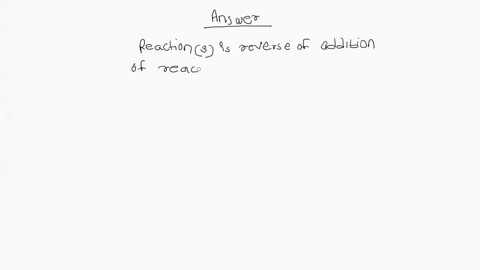 Answer
Reaction (3) is reverse of addition
of reac